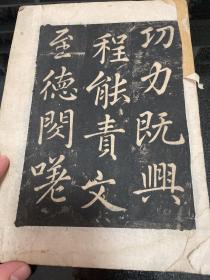 功力既興
程能責文
至德閔嗟